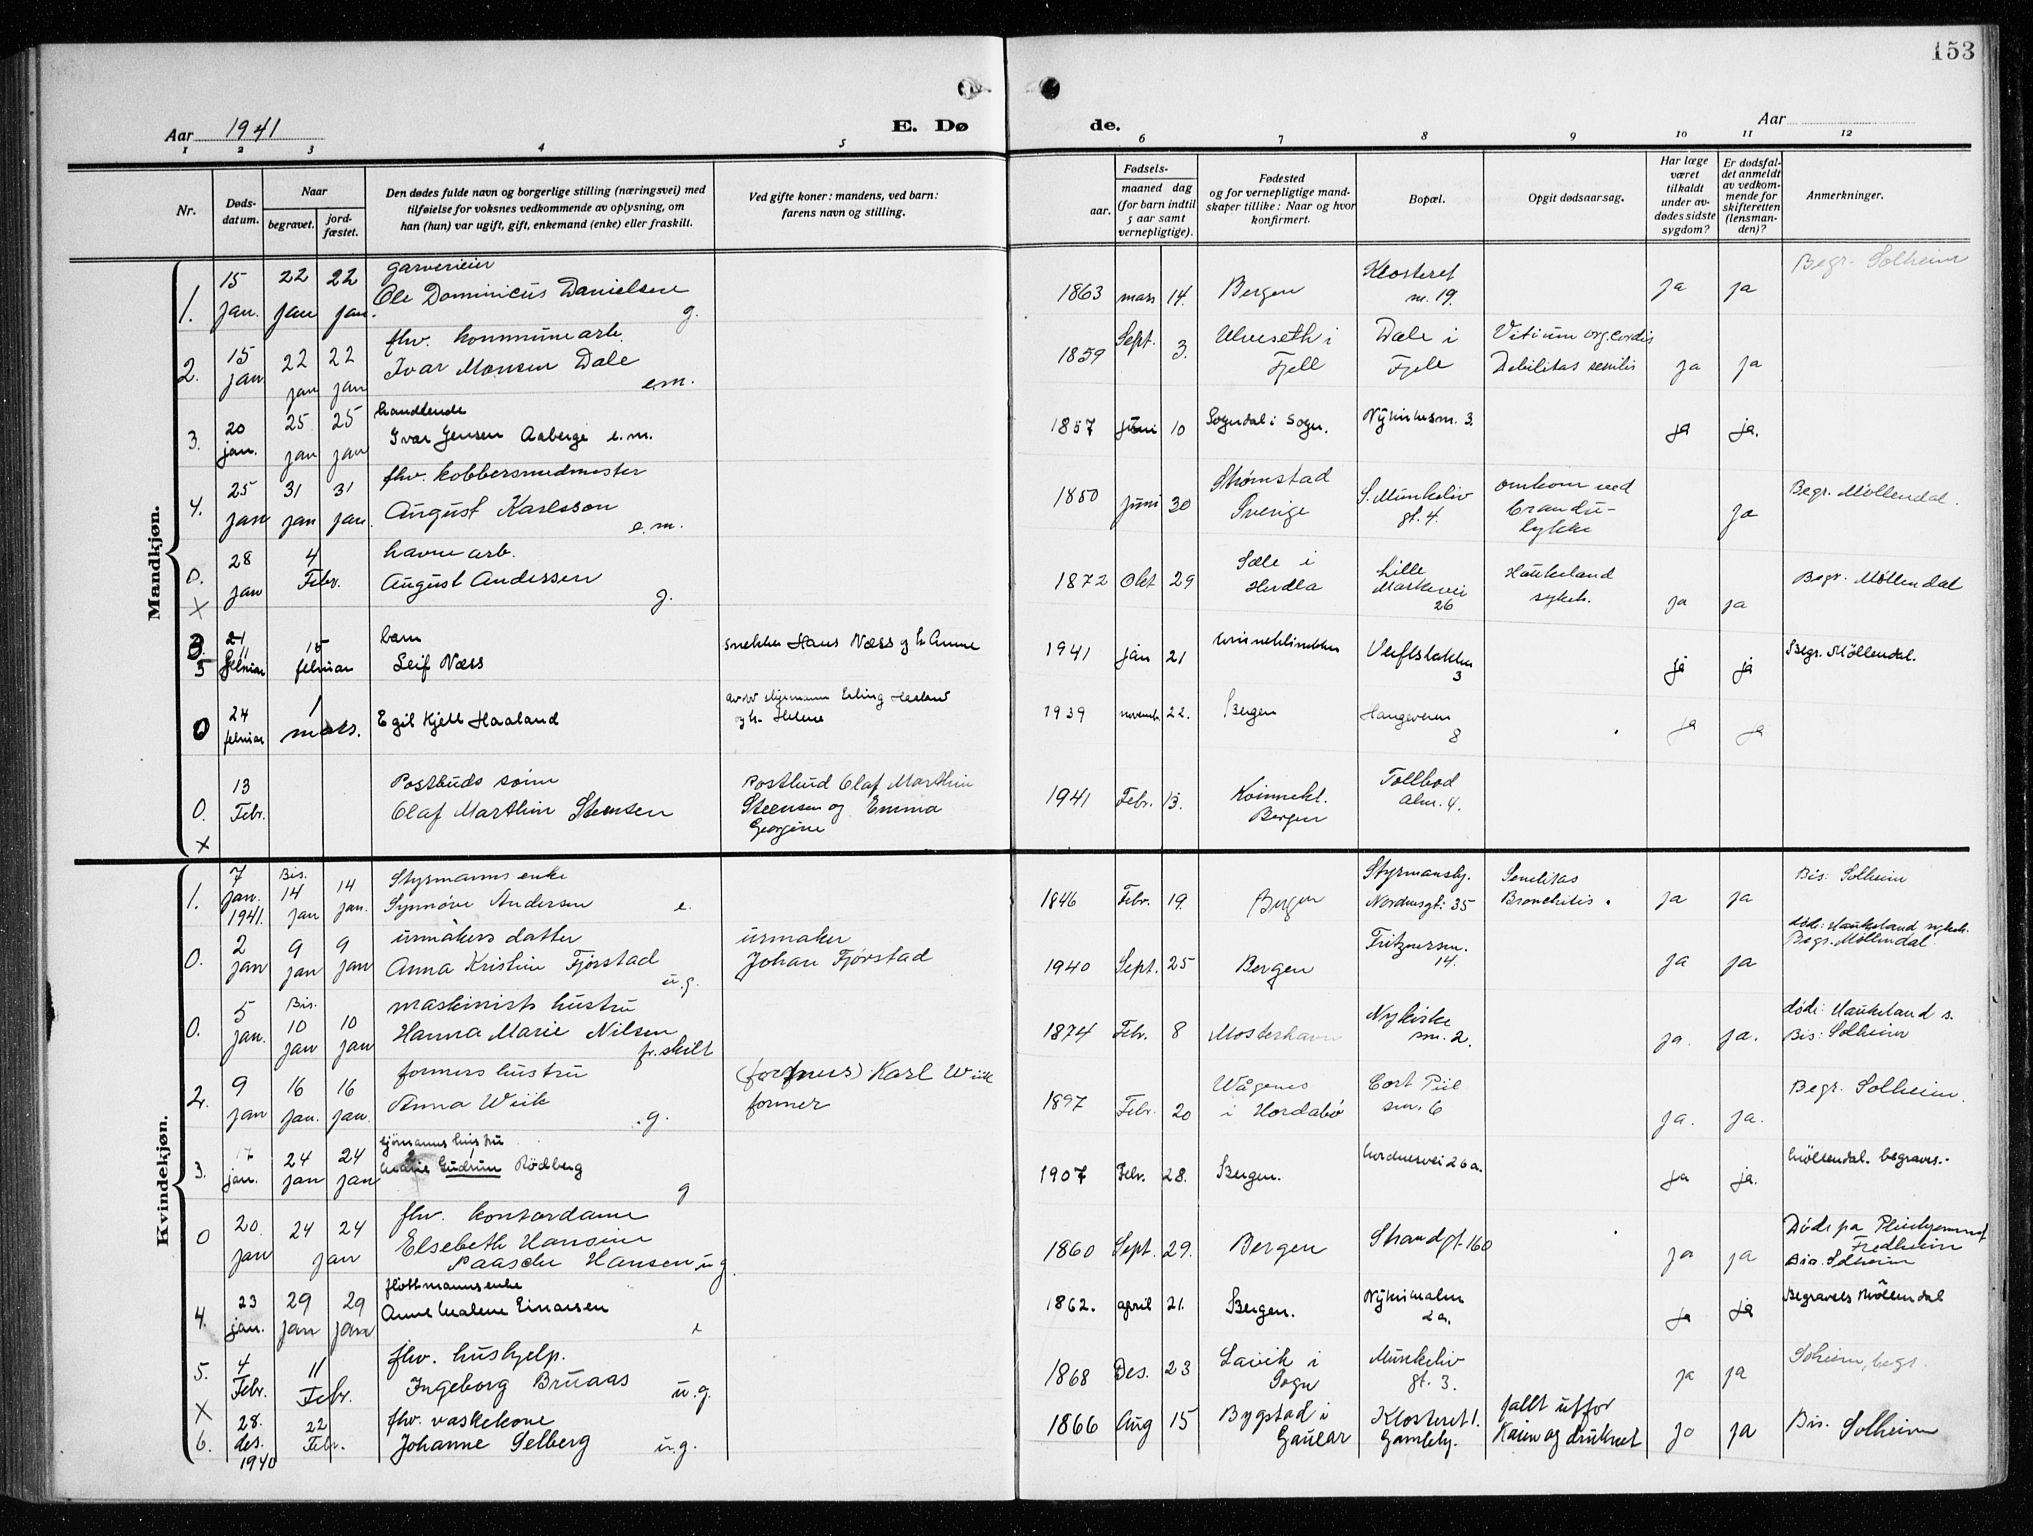 153
Aar 1941
E. Dø
de.
Aar
1 2 3 4 5 6 7 8 9 10 11 12
Nr.
Døds-
datum.
Naar
begravet.
jord-
fæstet.
Den dødes fulde navn og borgerlige stilling (næringsvei) med
tilføielse for voksnes vedkommende av oplysning, om
han (hun) var ugift, gift, enkemand (enke) eller fraskilt.
Ved gifte koner: mandens, ved barn:
farens navn og stilling.
Fødsels-
aar.
maaned dag
(for barn indtil
5 aar samt
vernepligtige).
Fødested
og for vernepligtige mand-
skaper tillike: Naar og hvor
konfirmert.
Bopæl.
Opgit dødsaarsag.
Har læge
været
tilkaldt
under av-
dødes sidste
sygdom?
Er dødsfal-
det anmeldt
av vedkom-
mende for
skifteretten
(lensman-
den)?
Anmerkninger.
Mandkjøn.
1. 15 jan. 22 jan 22 jan.
garverieier
Ole Dominicus Danielsen g.
1863 mars 14. Bergen
Klosteret
nr. 19.
ja ja
Begr. Solheim
2. 15 jan 22 jan 22 jan
fhv. kommunearb.
Ivar Monsen Dale e.m.
1859 Sept. 3. Ulveseth i
Fjell
Dale i
Fjell
Vitium org. cordis
Debilitas senilis
ja ja
3. 20 jan. 25 jan 25 jan
handlende
Ivar Jensen Aaberge e.m.
1857 juni 10 Sogndal i Sogn.
Nykirkesm. 3.
ja ja.
4. 25 jan 31 jan 31 jan.
fhv. kobbersmedmester
August Karlsson e.m.
1850 juni 30 Strømstad
Sverige
S. Munkeliv
gt. 4.
omkom ved
brandu-
lykke
ja
Begr. Møllendal.
0. x 28 jan 4 Febr.
havnearb.
August Andersen g.
1872 Okt 29 Sæle i
Herdla
Lille
Markevei
26
Haukeland
sykeh.
ja ja
Begr. Møllendal
5 11 februar 15 februar
barn
Leif Næss
snekker Hans Næss og h. Anne
1941 jan 21 kvinneklinikken
Verftsbakken
3
ja ja
Begr. Møllendal.
0 24 februar 1 mars.
Egil Kjell Haaland
Erling Haaland
og h. Helene
1939 novemb. 22. Bergen
Haugeveien
8
ja ja
0. x 13 Febr.
Postbuds sønn
Olaf Marthin Steensen
Postbud Olaf Marthin
Steensen og Emma
Georgine
1941 Febr. 13. Kvinnekl.
Bergen
Tollbod
alm. 4.
Kvindekjøn.
1. 7 jan. 1941. Bis. 14 jan 14 jan.
Styrmanns enke
Synnøve Andersen e.
1846 Febr. 19. Bergen
Styrmansby.
Nordnesgt. 35
Senilitas
Bronchitis.
ja ja
Bis. Solheim
0. 2 jan 9 jan 9 jan
urmakers datter
Anna Kristine Fjørstad u.g.
urmaker
Johan Fjørstad
1940 Sept. 25 Bergen
Fritznersm.
14.
ja ja
død: Haukeland sykeh.
Begr. Møllendal
0. 5 jan. Bis. 10 jan 10 jan
maskinists hustru
Hanna Marie Nilsen
fr. skilt
1874 Febr. 8 Mosterhavn
Nykirke
sm. 2.
ja. ja.
død: Haukeland s.
Bis: Solheim
2. 9 jan 16 jan. 16 jan.
formers hustru
Anna Wiik g.
(formers) Karl Wiik
former
1897 Febr. 20 Vågenes
i Hordabø
Cort Piil
sm. 6
ja. ja.
Begr. Solheim.
3. 17 jan. 24 jan 24 jan
sjømanns hustru
Marie Gudrun Rødberg g
1907 Febr. 28. Bergen.
Nordnesvei 26 a.
ja ja.
Møllendal. begraves.-
0 20 jan 24 24 jan
fhv. kontordame
Elsebeth Hansine
Paasche Hansen u.g.
1860 Sept. 29. Bergen
Strandgt. 160
ja ja
Døde på Pleiehjemmet
Fredheim
Bis. Solheim
4. 23 jan. 29 jan 29 jan
flöttmanns enke
Anne Malene Einarsen e
1862. april 21. Bergen.
Nykirkealm
2 a.
ja ja
Begraves Möllendal
5. x 4 Febr. 11 Febr.
fhv. hushjelp.
Ingeborg Bruaas u.g.
1868 Des. 23 Lavik i
Sogn
Munkeliv
gt. 3.
ja ja
Solheim, begr.
6. 28. des. 1940 22 Febr.
fhv. vaskekone
Johanne Selberg u.g.
1866 Aug 15 Bygstad i
Gaular
Klosteret 1.
Gamleby.
falt utfor
Kaien og druknet
ja ja
Bis. Solheim